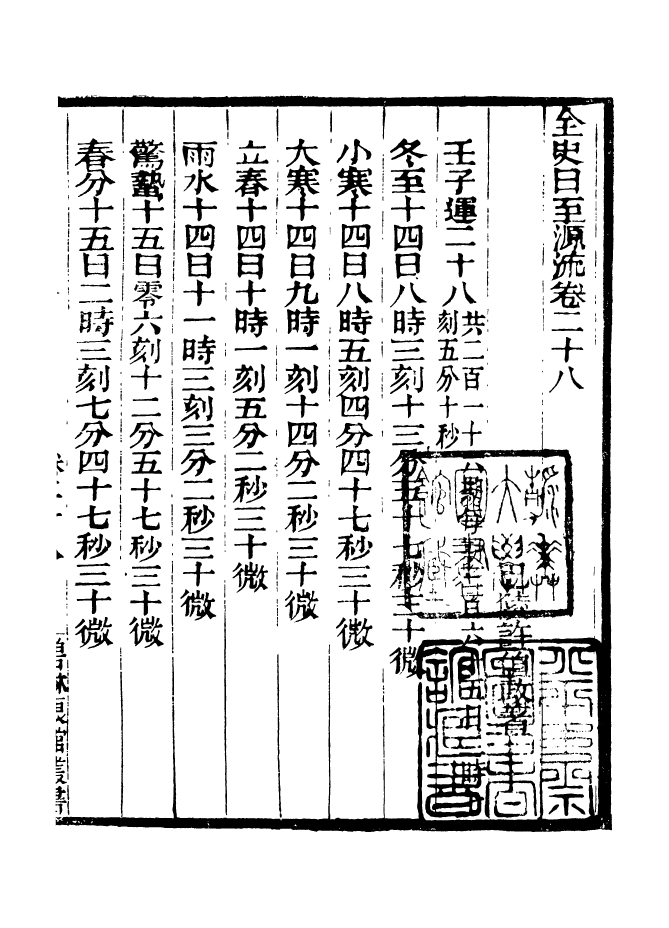 全史日至源流卷二十八
許伯政著
壬子運二十八 共二百一十 期每期三百六 五日 時
刻五分十秒
冬至十四日八時三刻十三分五十七秒三十微
小寒十四日八時五刻四分四十七秒三十微
大寒十四日九時一刻十四分二秒三十微
立春十四日十時一刻五分二秒三十微
雨水十四日十一時三刻三分二秒三十微
驚蟄十五日零六刻十二分五十七秒三十微
春分十五日二時三刻七分四十七秒三十微
卷二十八
叢書